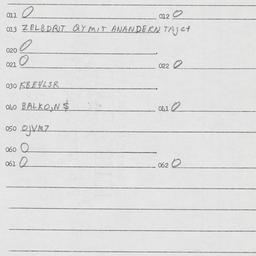 011 0 012 0
013 ZELBDRIT QY MIT ANANDERN TAJET
020 0
021 0 022 0
030 KBEYLSR
040 BALKO,N $ 041 0
050 OJVM7
060 0
061 0 062 0